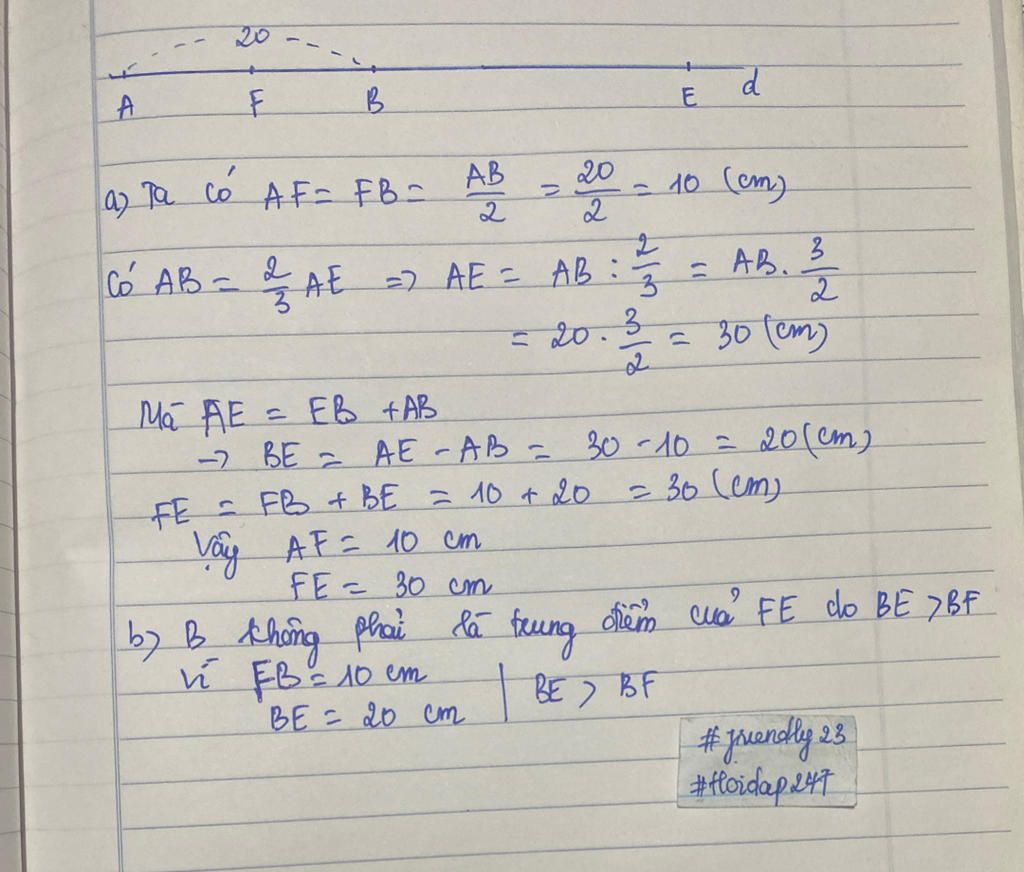 20
A F B E d
a) Ta có AF = FB = AB/2 = 20/2 = 10 (cm)
Có AB = 2/3 AE => AE = AB : 2/3 = AB . 3/2
= 20 . 3/2 = 30 (cm)
Mà AE = EB + AB
-> BE = AE - AB = 30 - 10 = 20 (cm)
FE = FB + BE = 10 + 20 = 30 (cm)
Vậy AF = 10 cm
FE = 30 cm
b) B không phải là trung điểm của FE do BE > BF
Vì FB = 10 cm
BE = 20 cm | BE > BF
#friendly23
#Hoidap247